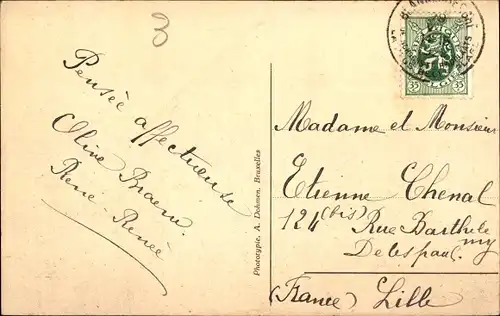 3
Pensée affectueuse
Olive Braem
René Renée
Phototypie. A. Dohmen, Bruxelles
BLANKENBERGE
35 BELGIE 35
Madame et Monsieur
Etienne Chenal
124 (bis) Rue Barthélemy
Delespaul.
(France) Lille